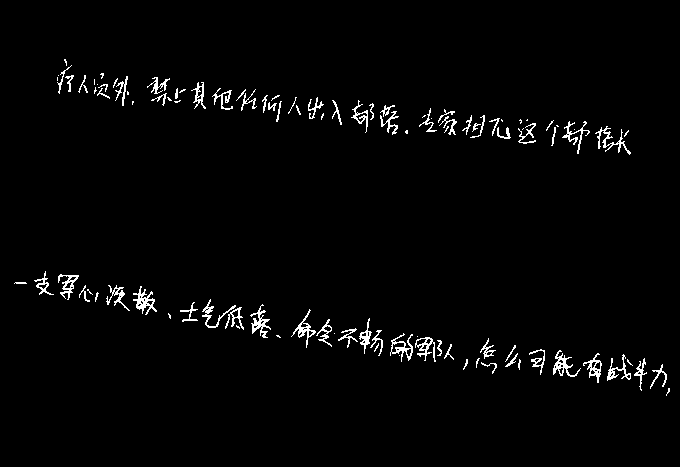 疗人员外，禁止其他任何人出入部落。专家担忧这个部落长
一支军心涣散、士气低落、命令不畅的军队，怎么可能有战斗力，